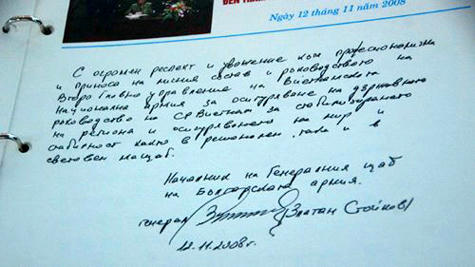 ĐẾN THĂM
Ngày 12 tháng 11 năm 2008
С огромен респект и уважение към професионализма
и приноса на личния състав и ръководството на
Второ Главно управление на Виетнамската
Национална армия за осигуряване на държавното
ръководство на СР Виетнам за стабилизирането
на региона и осигуряването на мир и
стабилност както в регионален, така и в
световен мащаб.
Началник на Генералния щаб
на Българската армия.
генерал Златан Стойков
12.11.2008г.